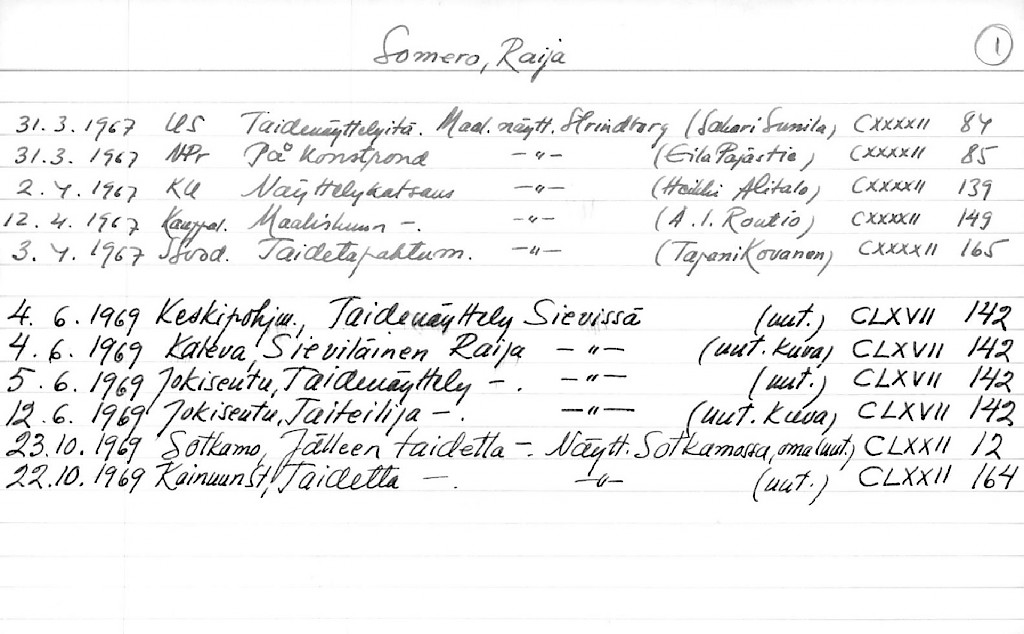 Somero, Raija 1
31.3.1967 US Taidenäyttelyitä. Maal. näytt. Strindberg (Sakari Sunila) CXXXXII 84
31.3.1967 NPr På Konstrond -"- (Eila Pajastie) CXXXXII 85
2.4.1967 KU Näyttelykatsaus -"- (Heikki Alitalo) CXXXXII 139
12.4.1967 Kauppal. Maaliskuun -. -"- (A.I. Routio) CXXXXII 149
3.4.1967 Ssosd. Taidetapahtum. -"- (Tapani Kovanen) CXXXXII 165
4.6.1969 Keskipohjm., Taidenäyttely Sievissä (uut.) CLXVII 142
4.6.1969 Kaleva, Sieviläinen Raija -"- (uut. kuva) CLXVII 142
5.6.1969 Jokiseutu, Taidenäyttely -. -"- (uut.) CLXVII 142
12.6.1969 Jokiseutu, Taiteilija -. -"- (uut. kuva) CLXVII 142
23.10.1969 Sotkamo, Jälleen taidetta -. Näytt. Sotkamossa, oma (uut.) CLXXII 12
22.10.1969 Kainuunst, Taidetta -. -"- (uut.) CLXXII 164